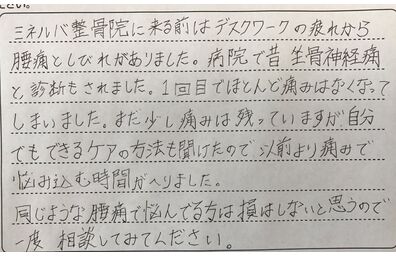 ださい。
ミネルバ整骨院に来る前はデスクワークの疲れから
腰痛としびれがありました。病院で昔 坐骨神経痛
と診断もされました。1回目でほとんど痛みはなくなって
しまいました。まだ少し痛みは残っていますが自分
でもできるケアの方法も聞けたので以前より痛みで
悩み込む時間がへりました。
同じような腰痛で悩んでる方は損はしないと思うので
一度 相談してみてください。